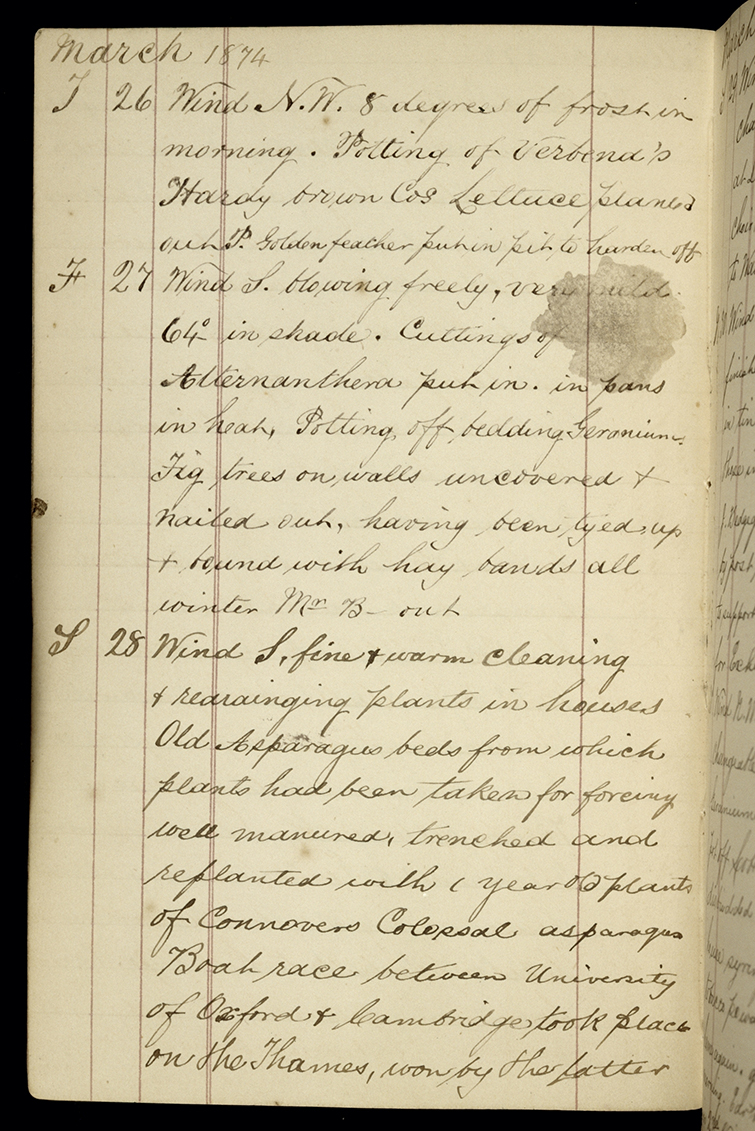 March 1874
T 26 Wind N.W. 8 degrees of frost in
morning. Potting of Verbena's
Hardy brown Cos Lettuce planted
out P. Golden feather put in pit to harden off
F 27 Wind S. blowing freely, very mild
64° in shade. Cuttings of
Alternanthera put in. in pans
in heat, Potting off bedding Geraniums
Fig trees on walls uncovered &
nailed out, having been tyed up
& bound with hay bands all
winter Mr B - out
S 28 Wind S, fine & warm cleaning
& rearainging plants in houses
Old Asparagus beds from which
plants had been taken for forcing
well manured, trenched and
replanted with 1 year old plants
of Connovers Colossal asparagus
Boat race between University
of Oxford & Cambridge took place
on the Thames, won by the latter